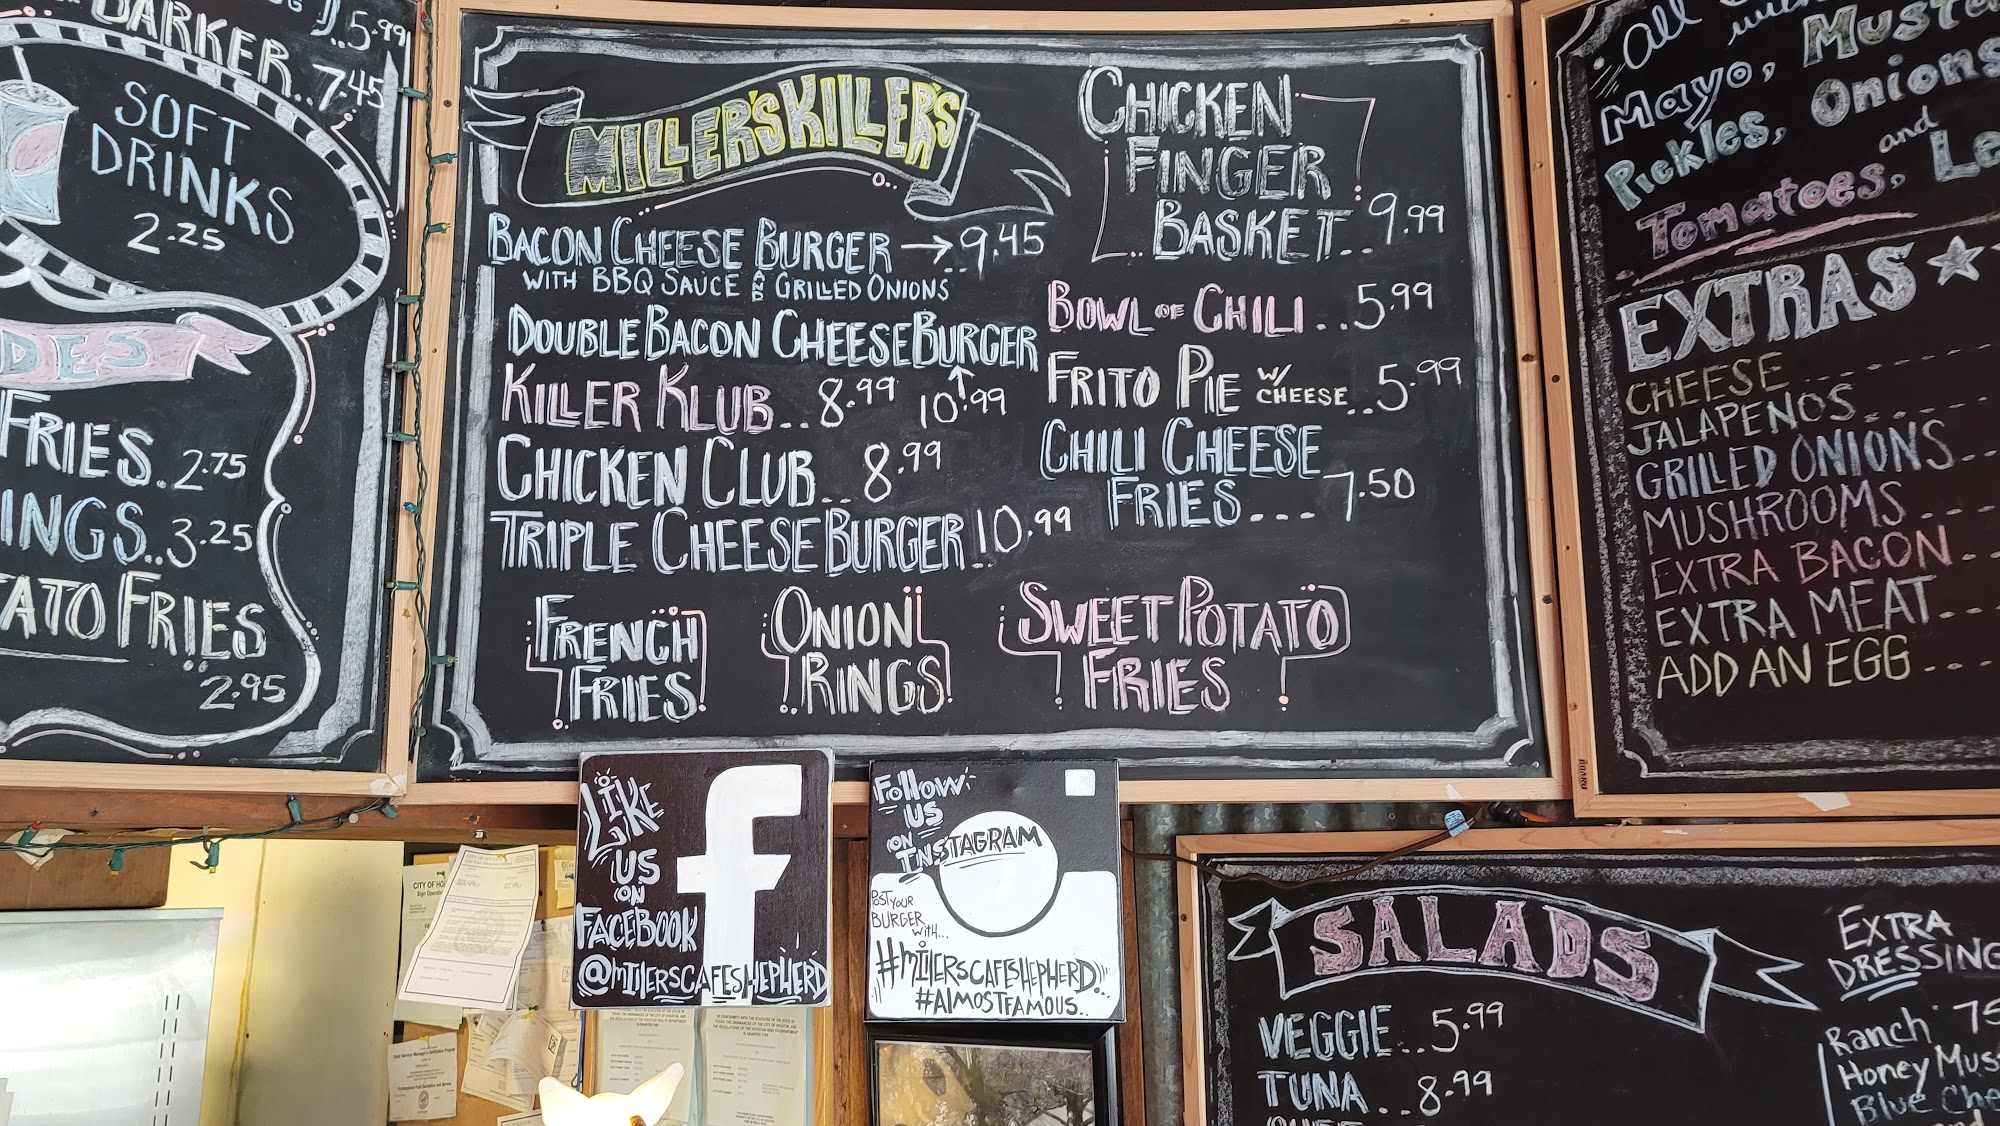 5.99
BARKER.. 7.45
SOFT
DRINKS
2.25
FRIES. 2.75
INGS.. 3.25
ATO FRIES..
2.95
MILLER'S KILLER'S
BACON CHEESE BURGER → 9.45
WITH BBQ SAUCE AND GRILLED ONIONS
DOUBLE BACON CHEESE BURGER
10.99
KILLER KLUB.. 8.99
CHICKEN CLUB.. 8.99
TRIPLE CHEESE BURGER.. 10.99
CHICKEN
FINGER
BASKET.. 9.99
BOWL OF CHILI.. 5.99
FRITO PIE W/ CHEESE.. 5.99
CHILI CHEESE
FRIES... 7.50
FRENCH
FRIES
ONION
RINGS
SWEET POTATO
FRIES
All
with
Mayo, Musta
Pickles, Onions
and
Tomatoes, Le
EXTRAS
CHEESE
JALAPENOS
GRILLED ONIONS
MUSHROOMS
EXTRA BACON
EXTRA MEAT
ADD AN EGG
LIKE
US
ON
FACEBOOK
@MILLERSCAFESHEPHERD
FOLLOW
US
ON
INSTAGRAM
POST YOUR
BURGER
WITH...
#MILLERSCAFESHEPHERD
#ALMOSTFAMOUS..
CITY OF HO
SALADS
VEGGIE.. 5.99
TUNA.. 8.99
EXTRA
DRESSING
Ranch 75
Honey Mus
Blue Che